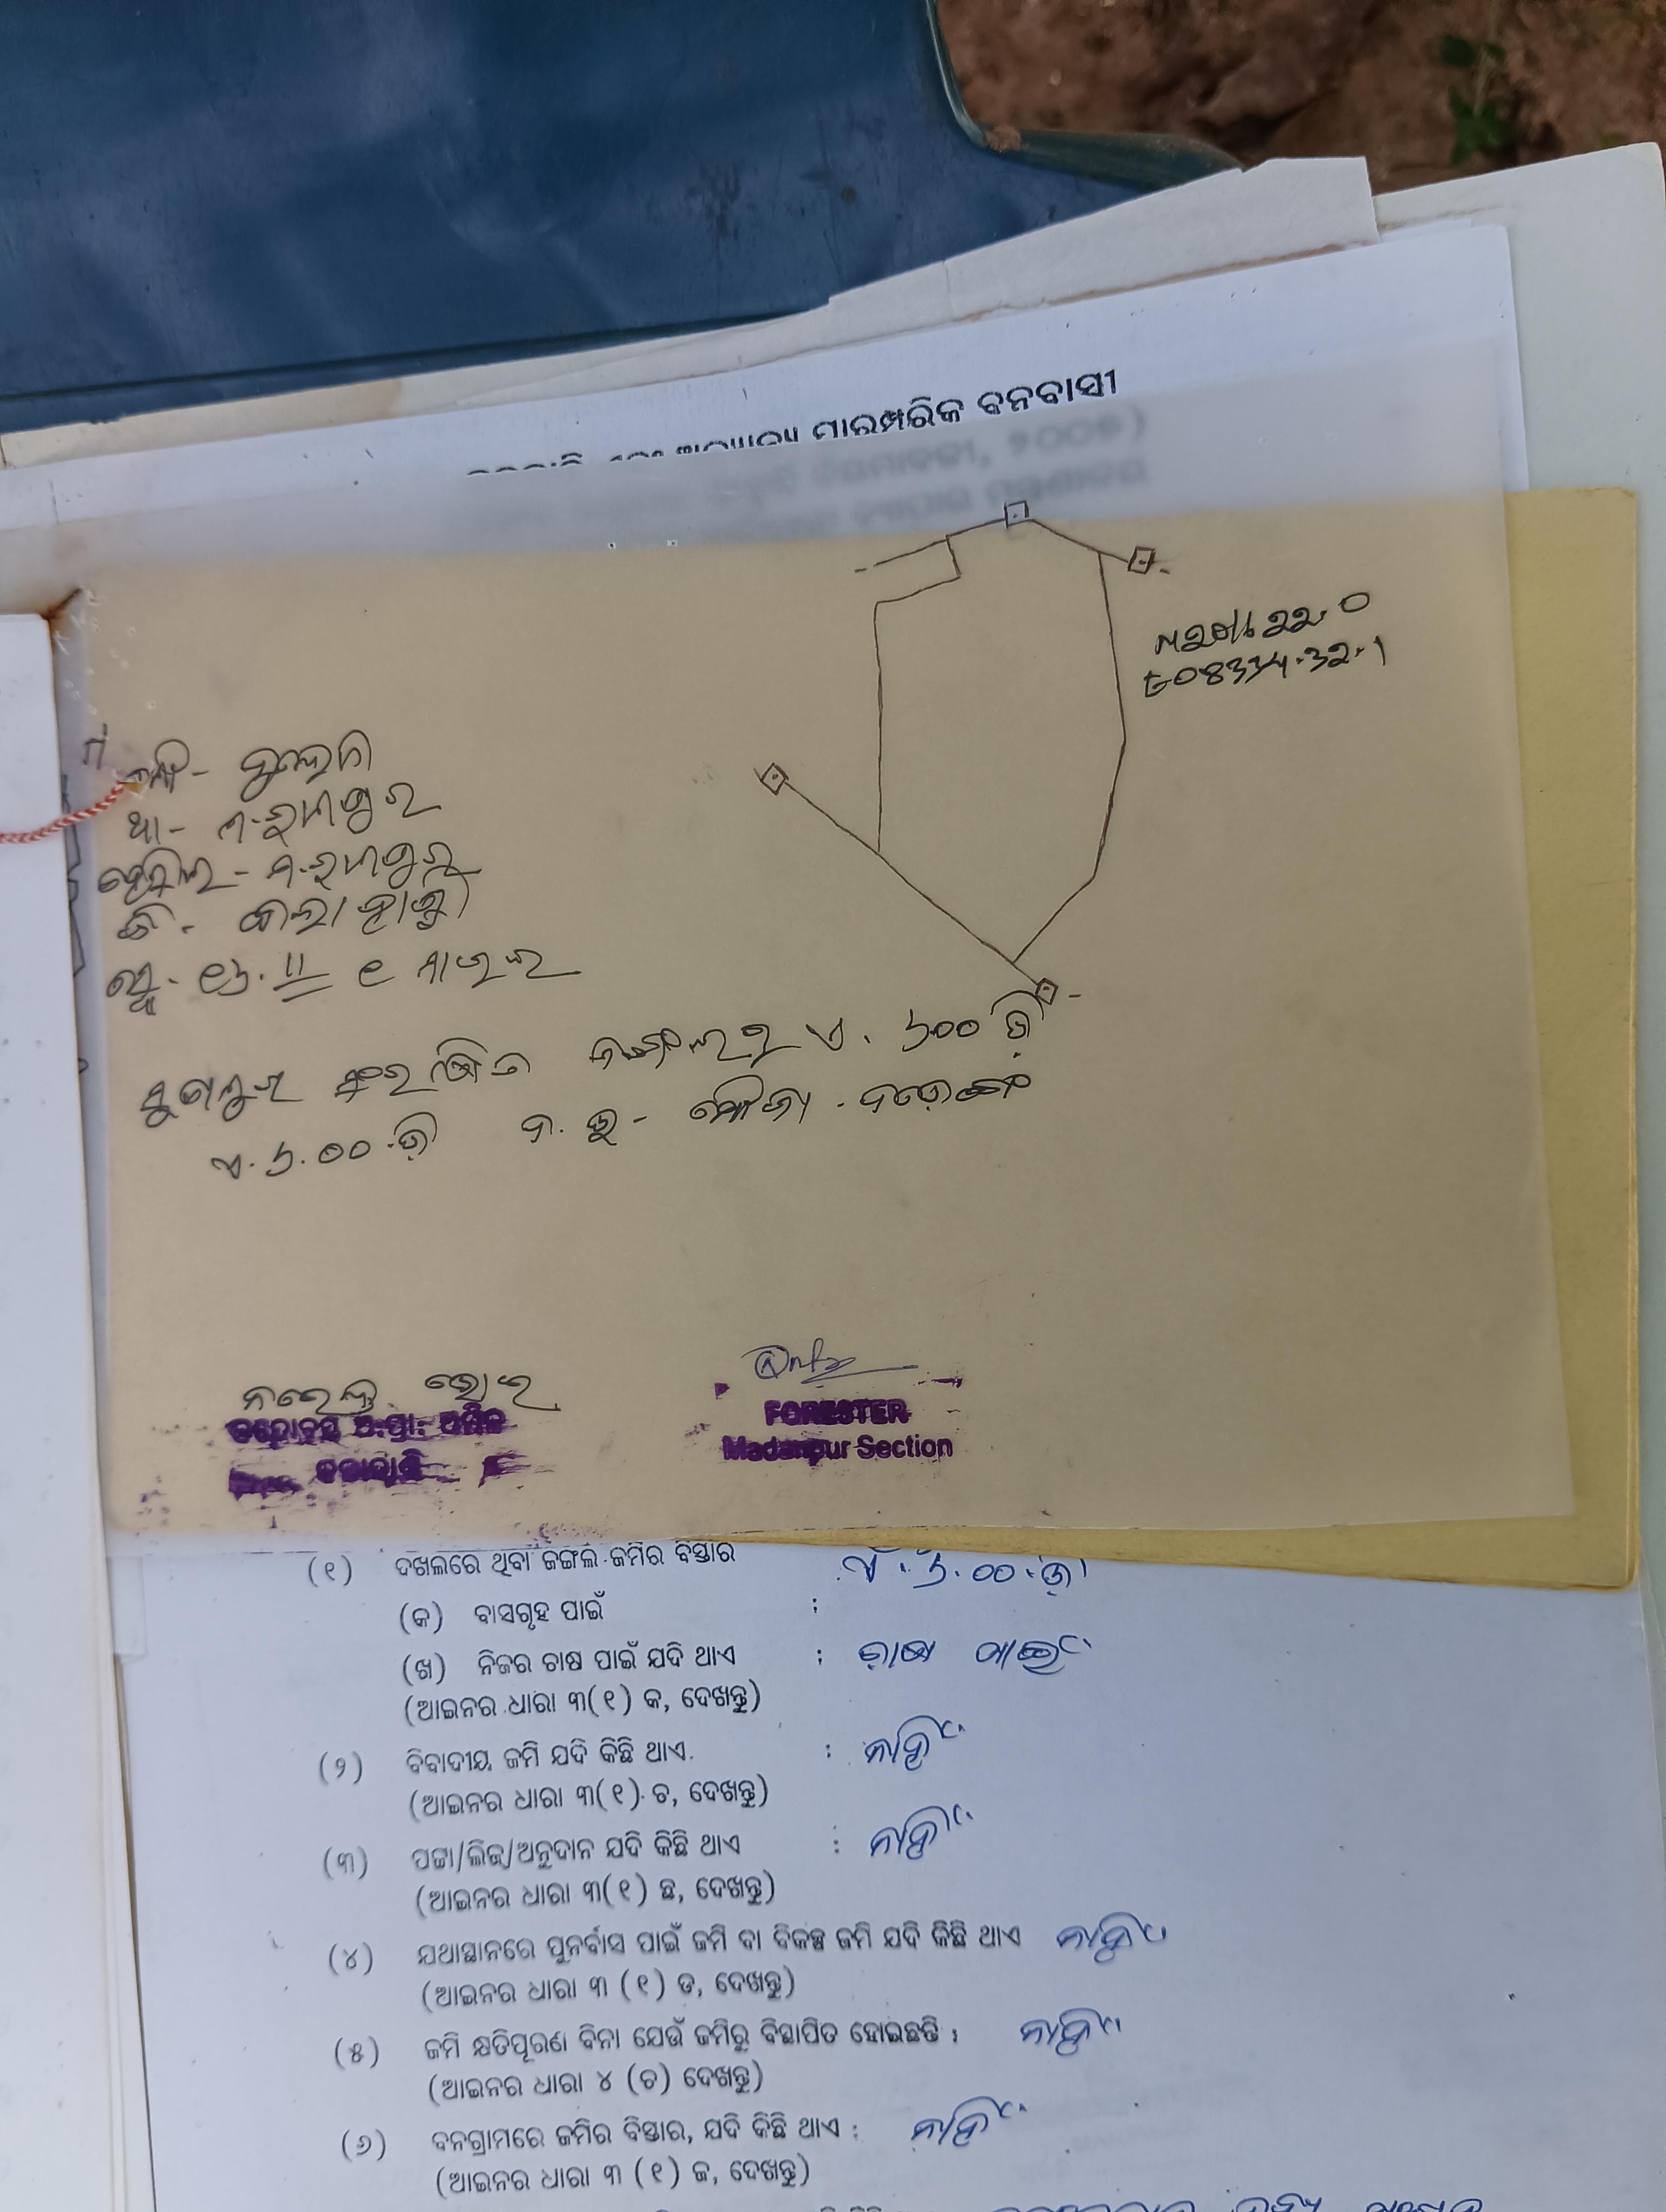 ପାରମ୍ପରିକ ବନବାସୀ
N2011622.0
E08334.32.1
ଥା- ମ.ରାମପୁର
ତହସିଲ- ମ.ରାମପୁର
ଜି- କଳାହାଣ୍ଡି
ସ୍କେ- ୧୬.II ୧ ମାଇଲ
ଜଙ୍ଗଲରୁ ଏ. ୬୦୦ ଡି
ଏ.୬.୦୦.ଡି ନ.ଭୁ- ମୌଜା-
ନରେନ୍ଦ୍ର ଭୋଇ
FORESTER
Madanpur Section
(୧) ଦଖଲରେ ଥିବା ଜଙ୍ଗଲ ଜମିର ବିସ୍ତାର ଏ.୬.୦୦.ଡି
(କ) ବାସଗୃହ ପାଇଁ :
(ଖ) ନିଜର ଚାଷ ପାଇଁ ଯଦି ଥାଏ : ଚାଷ ପାଇଁ
(ଆଇନର ଧାରା ୩(୧) କ, ଦେଖନ୍ତୁ)
(୨) ବିବାଦୀୟ ଜମି ଯଦି କିଛି ଥାଏ. : ନାହିଁ
(ଆଇନର ଧାରା ୩(୧) ଚ, ଦେଖନ୍ତୁ)
(୩) ପଟ୍ଟା/ଲିଜ୍/ଅନୁଦାନ ଯଦି କିଛି ଥାଏ : ନାହିଁ
(ଆଇନର ଧାରା ୩(୧) ଛ, ଦେଖନ୍ତୁ)
(୪) ଯଥାସ୍ଥାନରେ ପୁନର୍ବାସ ପାଇଁ ଜମି ବା ବିକଳ୍ପ ଜମି ଯଦି କିଛି ଥାଏ ନାହିଁ
(ଆଇନର ଧାରା ୩ (୧) ଡ, ଦେଖନ୍ତୁ)
(୫) ଜମି କ୍ଷତିପୂରଣ ବିନା ଯେଉଁ ଜମିରୁ ବିସ୍ଥାପିତ ହୋଇଛନ୍ତି : ନାହିଁ
(ଆଇନର ଧାରା ୪ (ଚ) ଦେଖନ୍ତୁ)
(୬) ବନଗ୍ରାମରେ ଜମିର ବିସ୍ତାର, ଯଦି କିଛି ଥାଏ : ନାହିଁ
(ଆଇନର ଧାରା ୩ (୧) ଜ, ଦେଖନ୍ତୁ)